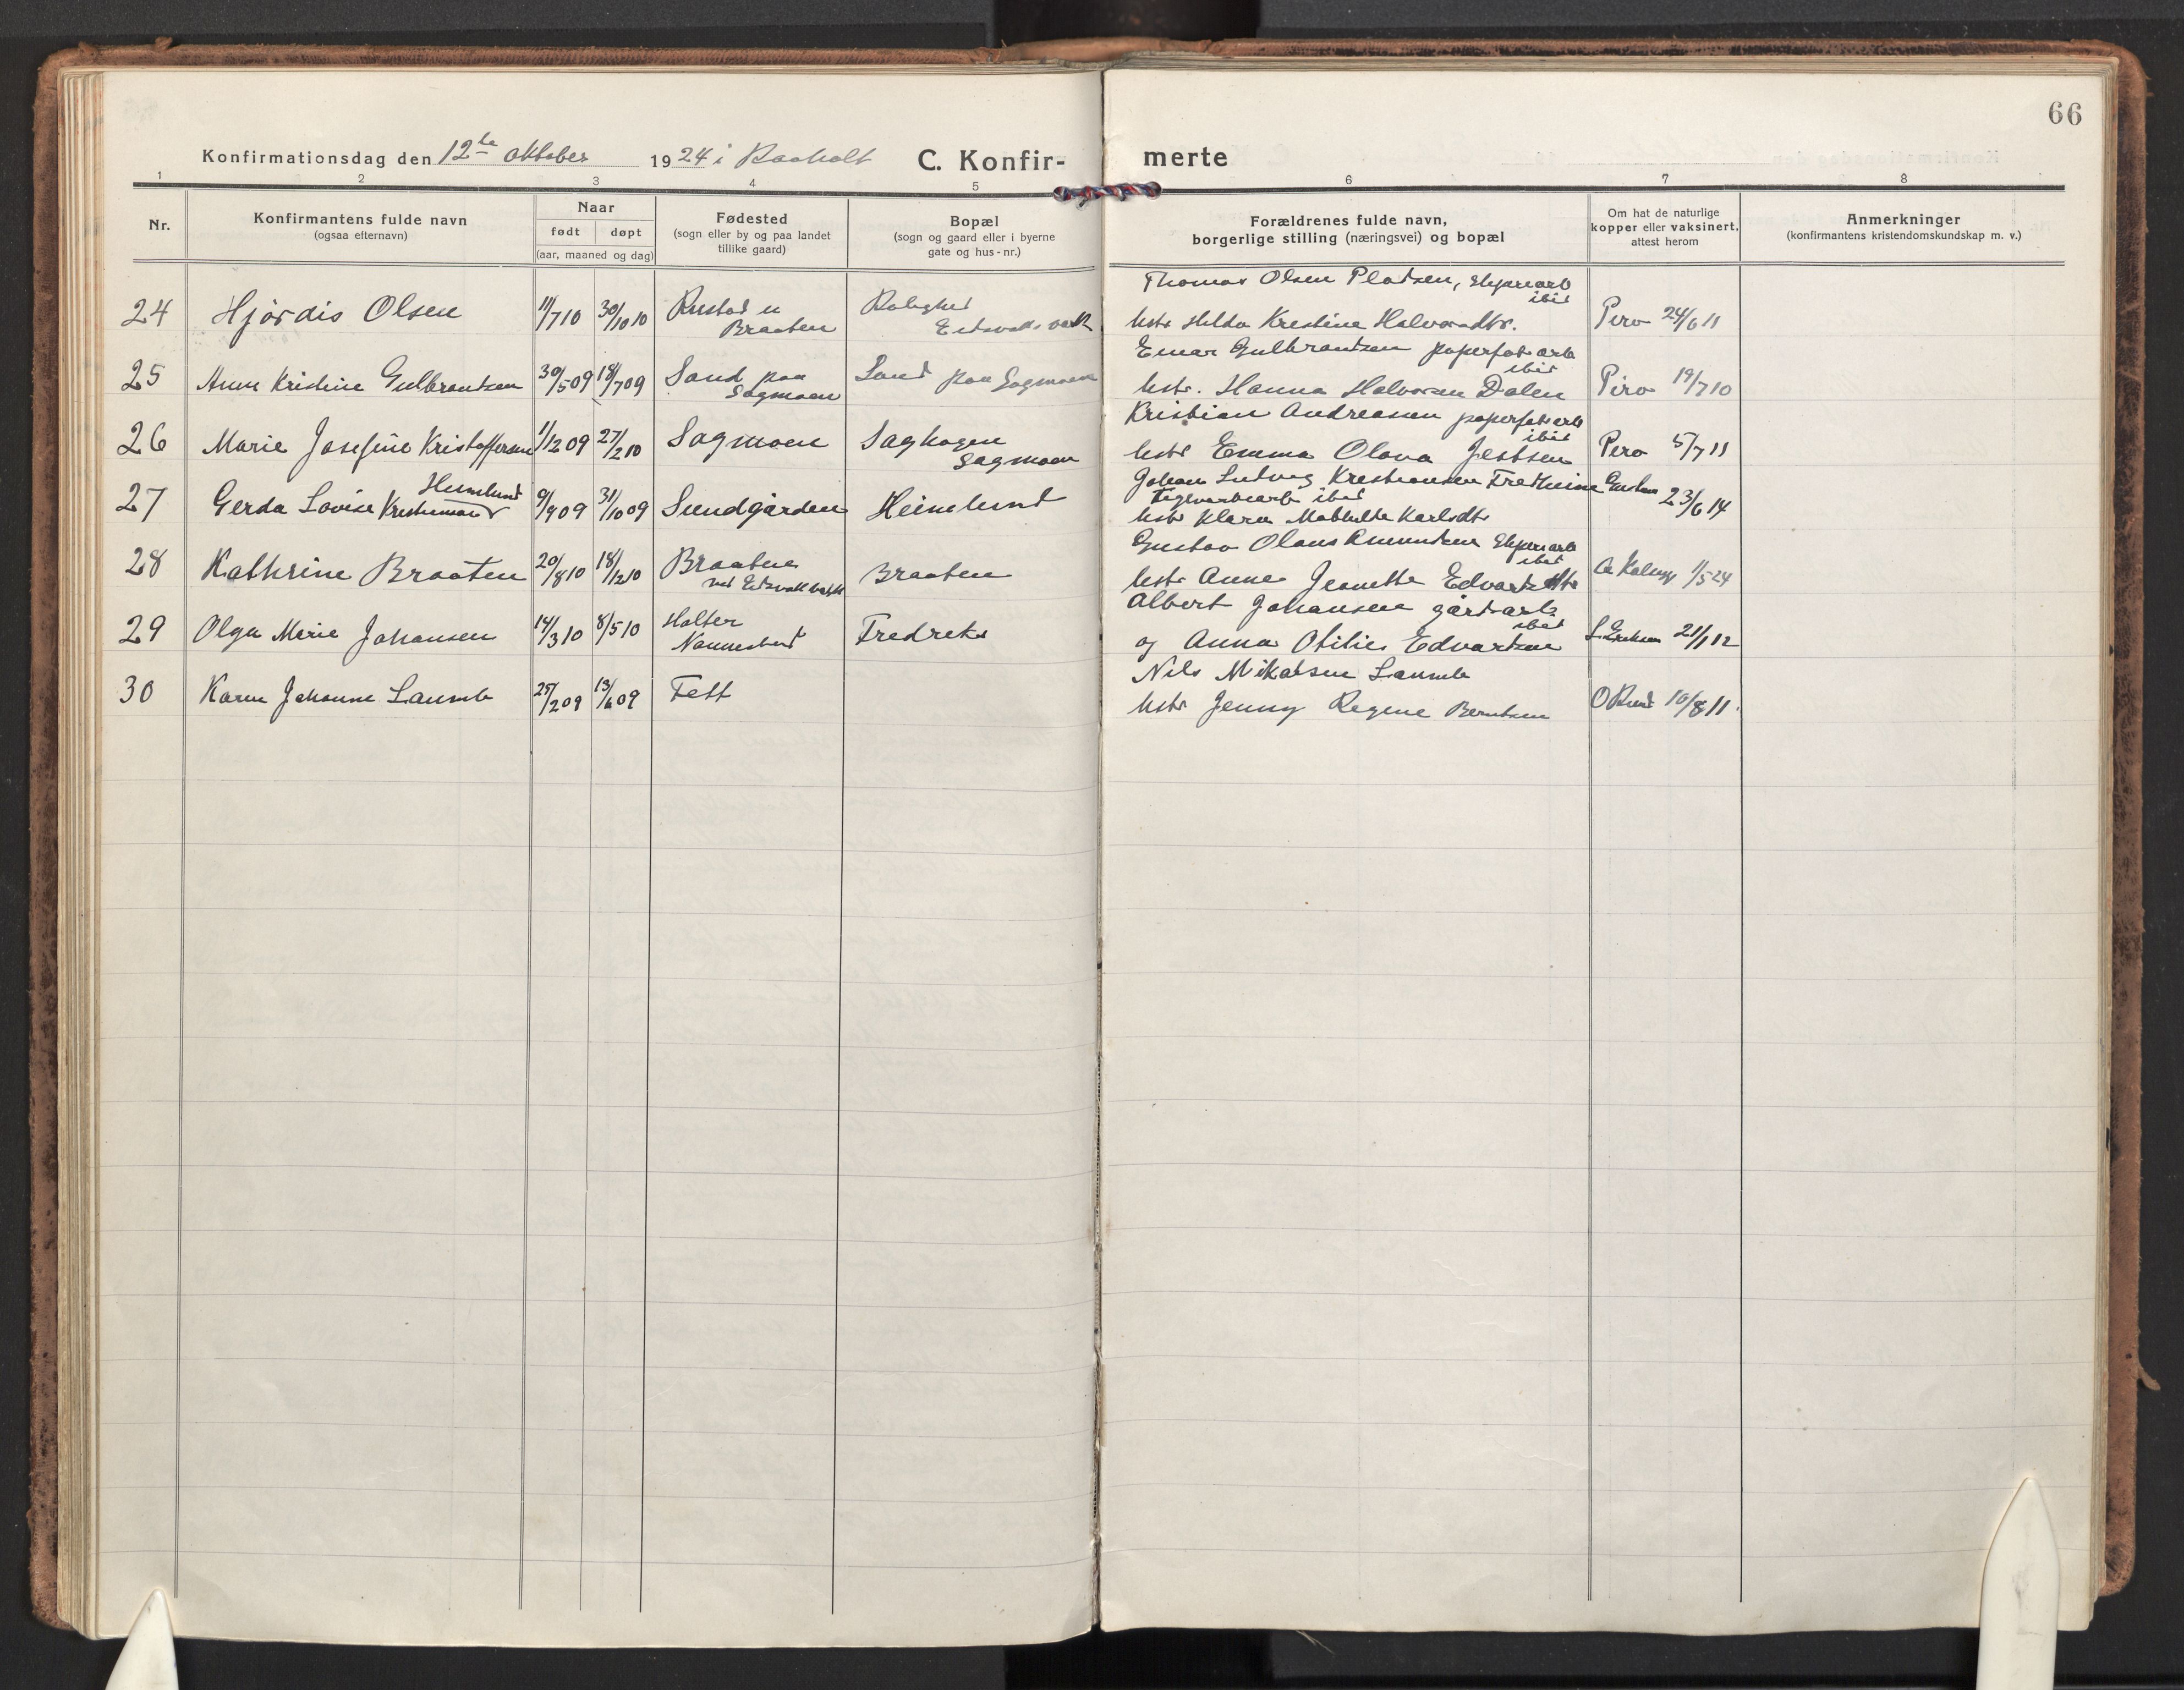 66
Konfirmationsdag den 12te oktober 1924 i Raaholt C. Konfir- merte
1 2 3 4 5 6 7 8
Nr.
Konfirmantens fulde navn
(ogsaa efternavn)
Naar
født døpt
(aar, maaned og dag)
Fødested
(sogn eller by og paa landet
tillike gaard)
Bopæl
(sogn og gaard eller i byerne
gate og hus-nr.)
Forældrenes fulde navn,
borgerlige stilling (næringsvei) og bopæl
Om hat de naturlige
kopper eller vaksinert,
attest herom
Anmerkninger
(konfirmantens kristendomskundskap m. v.)
Thomas Olsen Pladsen,
ibid
24 Hjørdis Olsen 11/7 10 30/10 10 Rustad u Rolighet
Braaten Eidsvolls verk
hstr Hilda Kristine Halvorsdtr. Pero 24/6 11
Einar Gulbrantsen papirfab arb
ibid
25 Anna Kristine Gulbrantsen 30/5 09 18/7 09 Sand paa Sand paa Sagmoen
Sagmoen
hstr. Hanna Halvorsen Dalen Piro 19/7 10
Kristian Andreassen papirfab arb
ibid
26 Marie Josefine Kristoffersen 1/12 09 27/2 10 Sagmoen Saghagen
Sagmoen
hstr Emma Olava Jestsen Pero 5/7 11
Johan Ludvig Kristiansen
Heimlund
27 Gerda Lovise 9/9 09 31/10 09 Sundgården Heimlund
Teglverksarb ibid 23/6 14
hstr Klara Mathilde Karlsdtr
Gustav Olaus Amundsen
ibid
28 Kathrine Braaten 20/8 10 18/12 10 Braaten Braaten
ved Eidsvoll verk
hstr Anna Jeanette Edvartsdtr 1/5 24
Albert Johansen gårdsarb
ibid
29 Olga Marie Johansen 14/3 10 8/5 10 Holter Fredreks
Nannestad
og Anna Otilie Edvartsen L. Eriksen 21/1 12
Nils Mikalsen Laumb
30 Karen Johanne Laumb 25/2 09 13/6 09 Fett
hstr Jenny Regine Berntsen O Rud 10/8 11